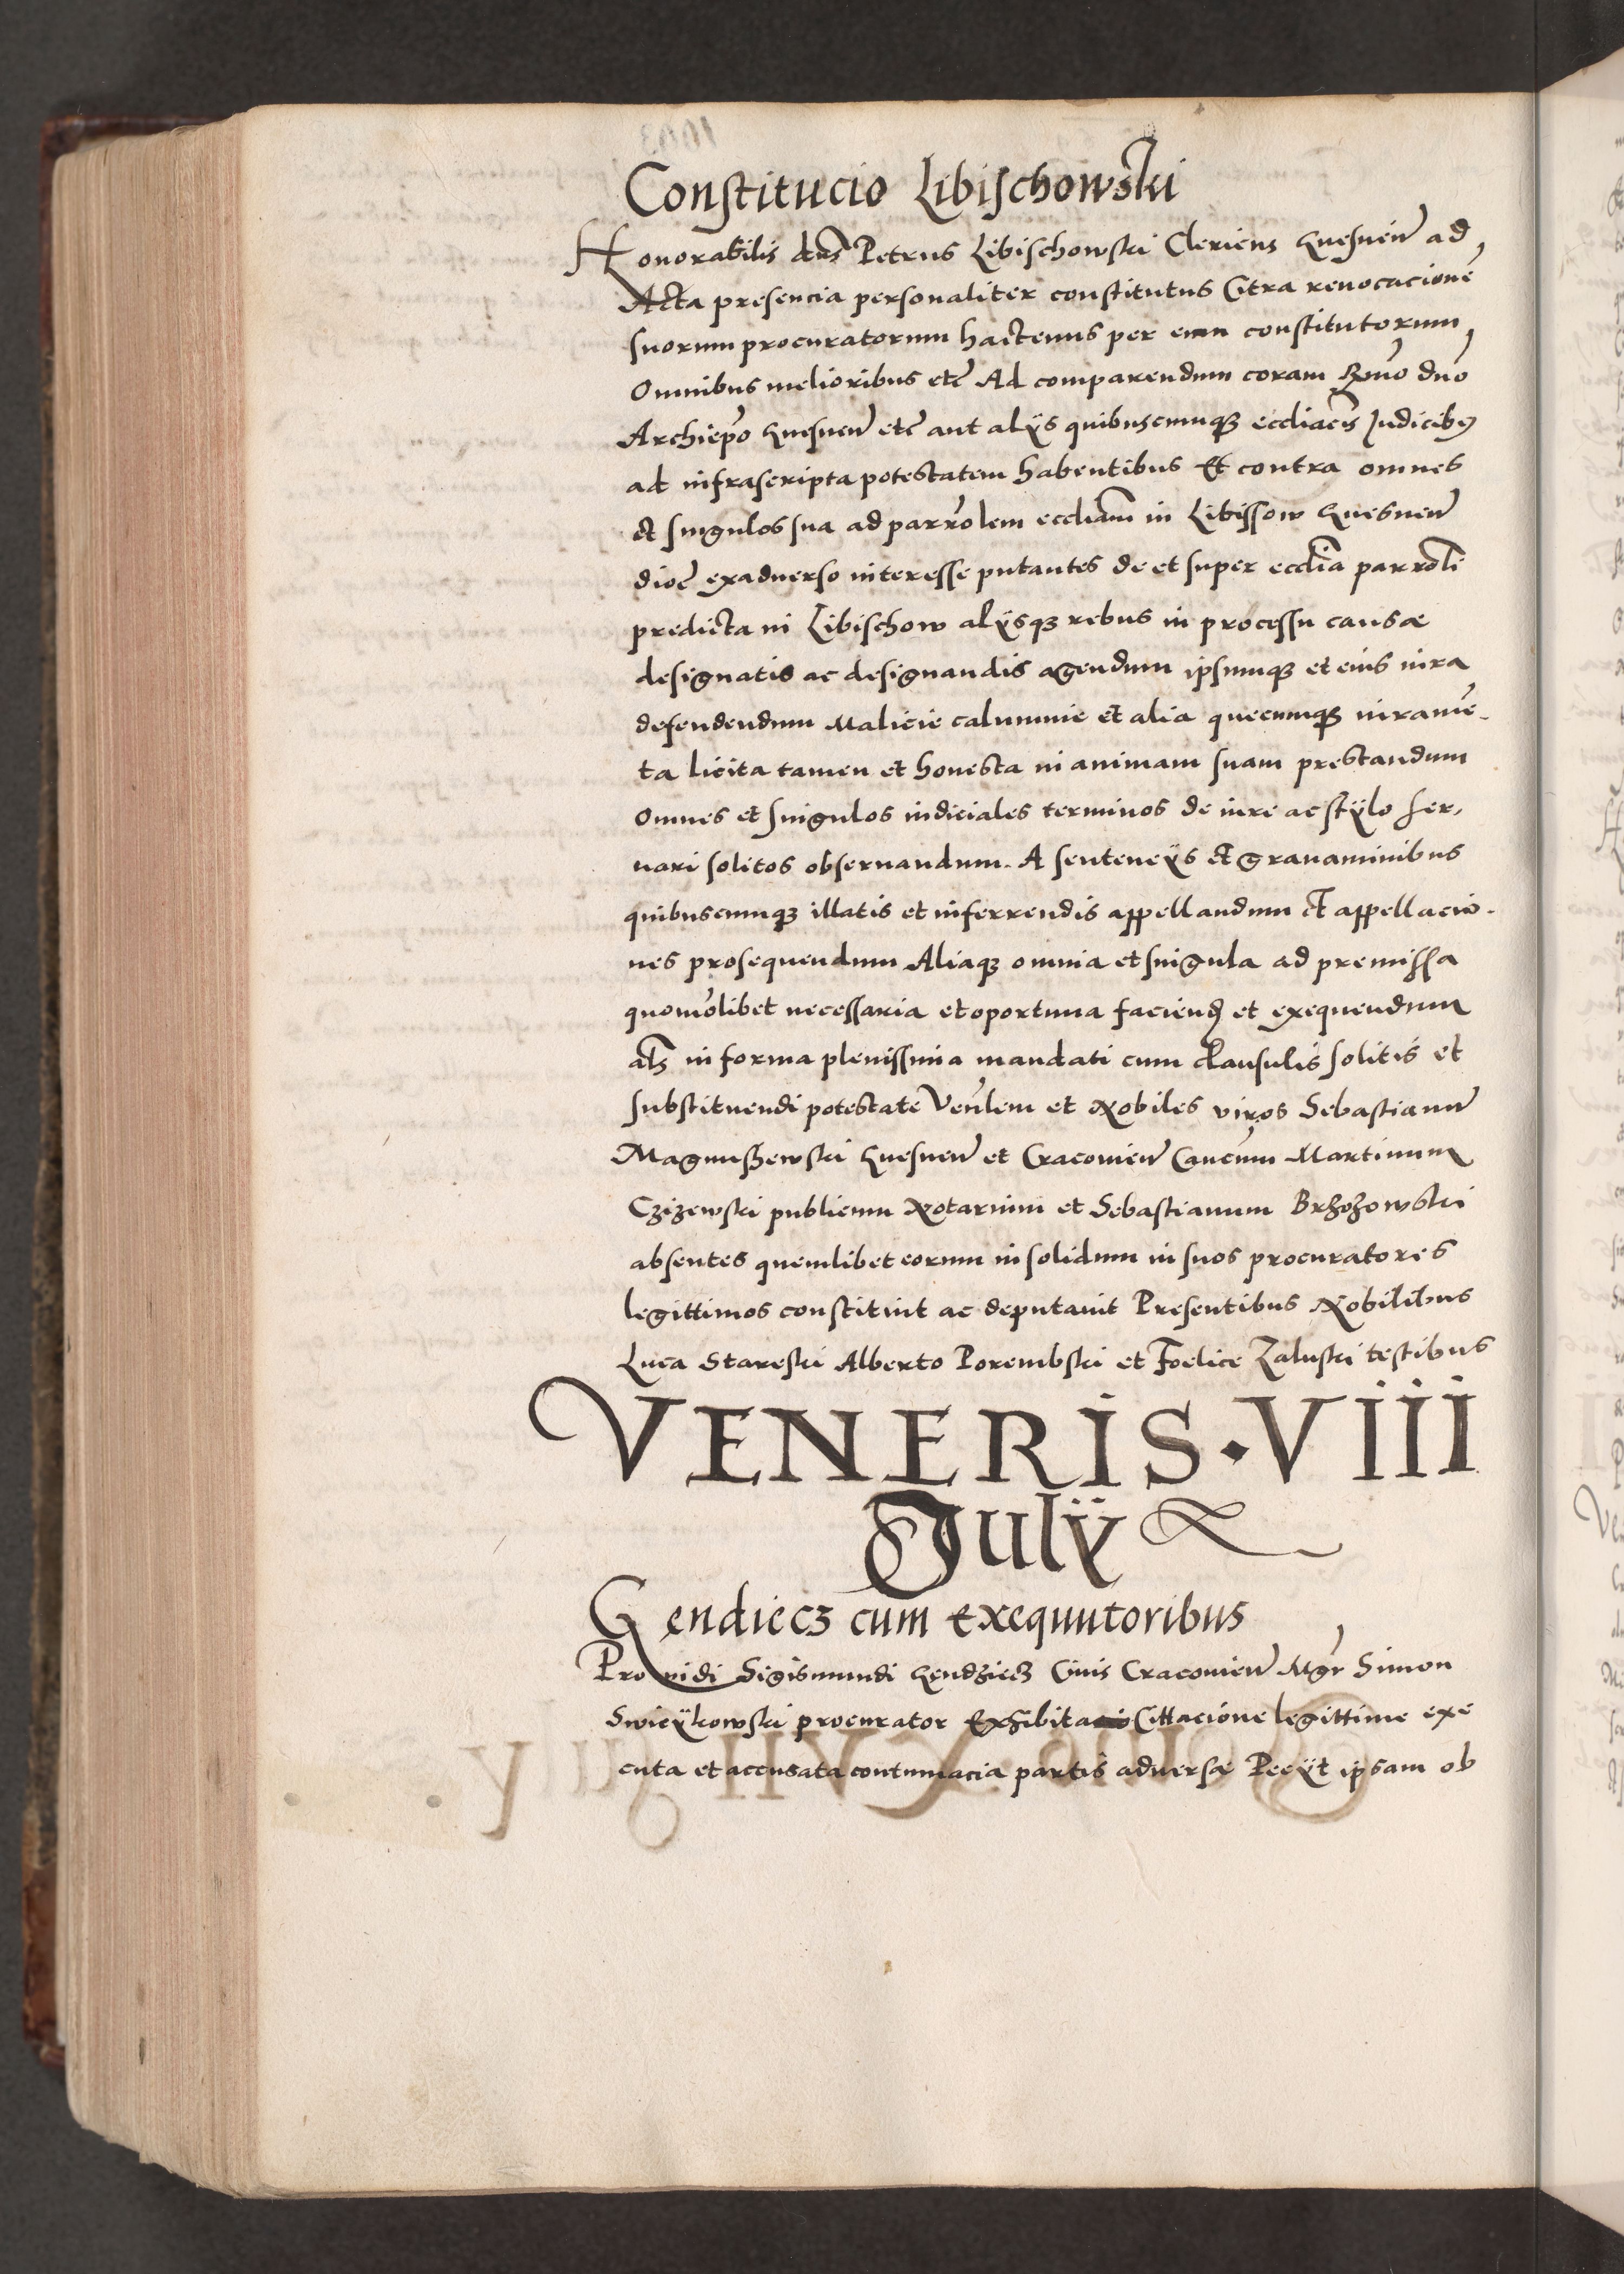 Constitucio Libischowski
Honorabilis dns Petrus Libischowski Clericus Gnesnen ad
Acta presencia personaliter constitutus Citra reuocacionē
suorum procuratorum hactenus per eum constitutorum,
Omnibus melioribus etc̄ Ad comparendum coram Rmo dno
Archiepo Gnesnen etc̄ aut alijs quibuscumqꝫ eccliacis Judicibꝰ
ad infrascripta potestatem habentibus Et contra omnes
et singulos sua ad parrolem eccliam in Libissow Gnesnen
dioc̄ exaduerso interesse putantes de et super ecclia parroli
predicta in Libischow alijsqꝫ rebus in processu causæ
designatis ac designandis agendum ipsumqꝫ et eius iura
defendendum Malicie calumnie et alia quecumqꝫ iuramē-
ta licita tamen et honesta in animam suam prestandum
Omnes et singulos iudiciales terminos de iure ac stÿlo ser,
uari solitos obseruandum. A sentencijs et grauaminibus
quibuscumqꝫ illatis et inferrendis appellandum et appellacio-
nes prosequendum Aliaqꝫ omnia et singula ad premissa
quomolibet necessaria et oportuna faciend et exequendum
als in forma plenissima mandati cum clausulis solitis et
substituendi potestate Venlem et Nobiles viros Sebastianum
Magnuszewski Gnesnen et Cracouien Cancum Martinum
Czizewski publicum Notarium et Sebastianum Brzozowski
absentes quemlibet eorum insolidum in suos procuratores
legittimos constituit ac deputauit Presentibus Nobilibus
Luca Stareski Alberto Porembski et Foelice Zaluski testibus
VENERIS · VIII
Julÿ
Gendiecz cum exequutoribus
Prouidi Sigismundi Gendziecz Ciuis Cracouien Mgr Simon
Swieÿkowski procurator Exhibita Cittacione legittime exe
cuta et accusata contumacia partis aduersæ Pecÿt ipsam ob